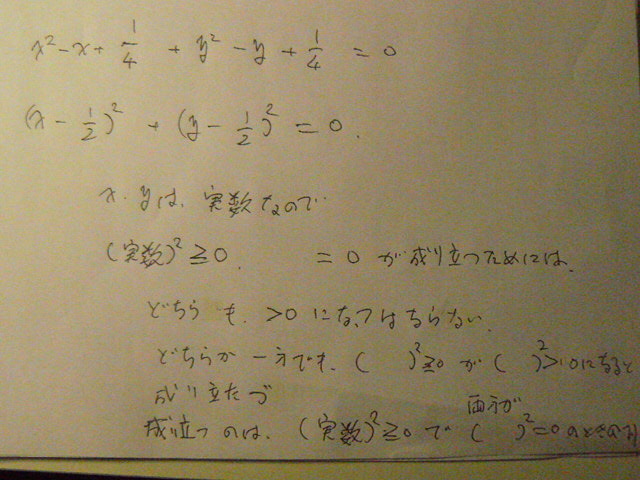 x² - x + 1/4 + y² - y + 1/4 = 0
(x - 1/2)² + (y - 1/2)² = 0.
x. yは、実数なので
(実数)² ≧ 0. = 0 が成り立つためには、
どちらも、>0 になってはならない、
どちらか一方でも、( )² ≧0 が ( )² >0になると
成り立たづ
両方が
成り立つのは、(実数)² ≧0 で ( )² =0 のときのみ